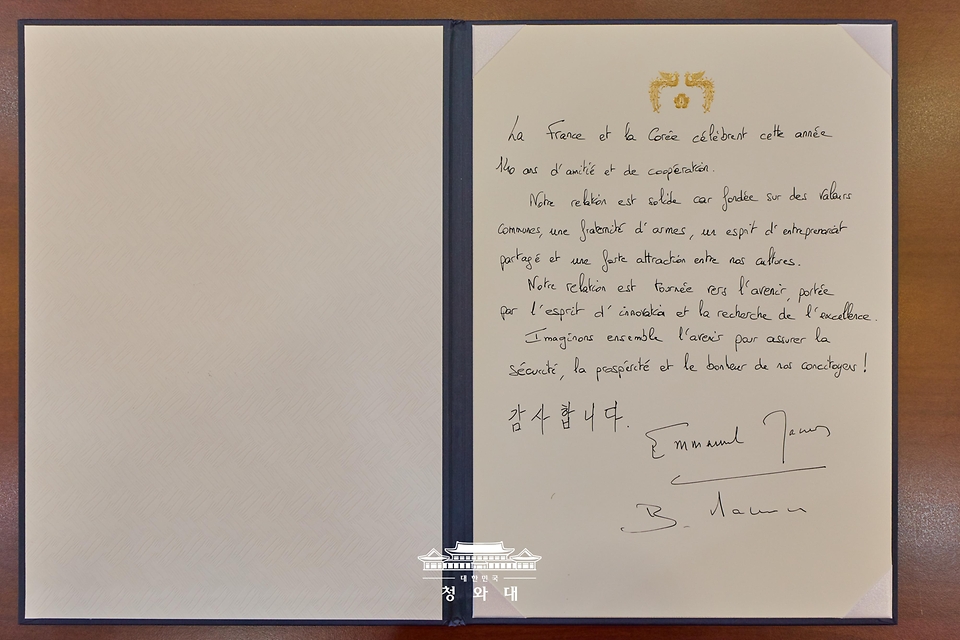 La France et la Corée célèbrent cette année
140 ans d'amitié et de coopération.
Notre relation est solide car fondée sur des valeurs
communes, une fraternité d'armes, un esprit d'entreprenariat
partagé et une forte attraction entre nos cultures.
Notre relation est tournée vers l'avenir, portée
par l'esprit d'innovation et la recherche de l'excellence.
Imaginons ensemble l'avenir pour assurer la
sécurité, la prospérité et le bonheur de nos concitoyens !
감사합니다.
Emmanuel Macron
B. Macron
대한민국
청와대